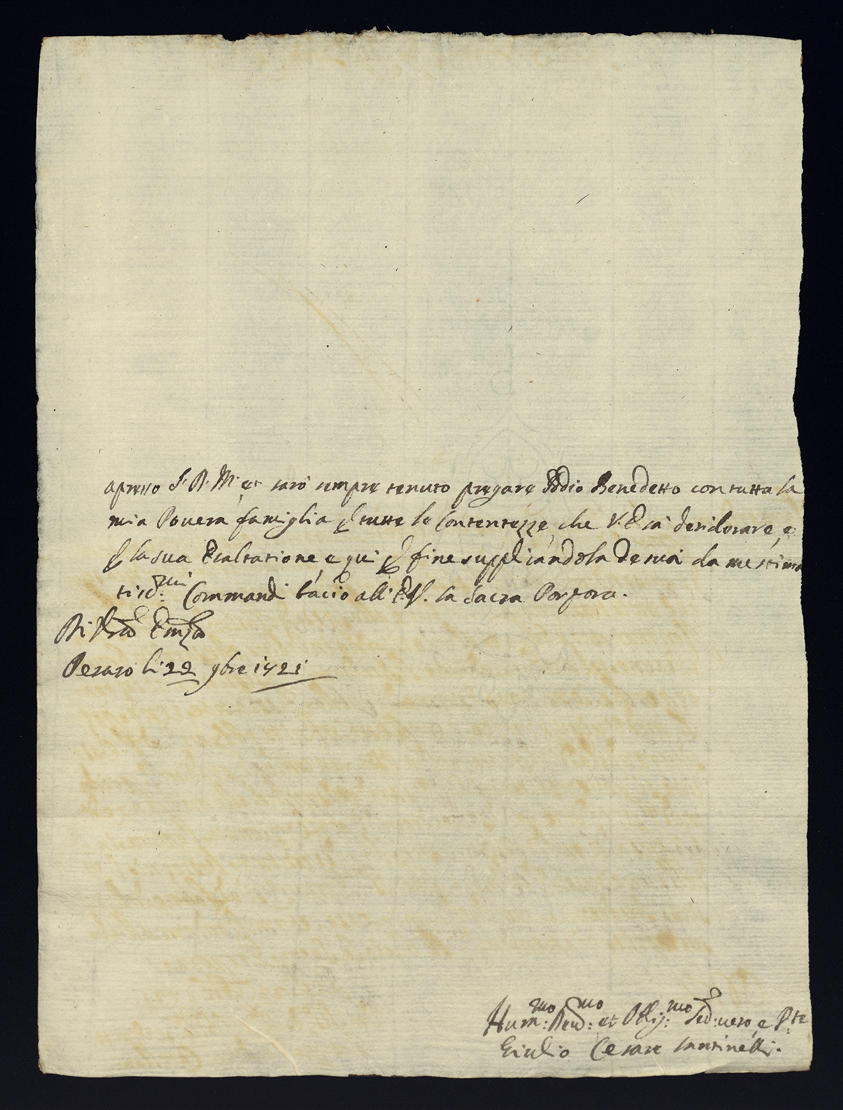 apresso S. R. M. et sarò sempre tenuto pregare Iddio Benedetto con tutta la
mia Povera famiglia p tutte le Contentezze che V. E. sà desiderare, e
p la sua Esaltatione, e qui p fine supplicandola de suoi da me stima
tiss:mi Commandi bacio all'E.V. la Sacra Porpora.
Pesaro li 22 9bre 1721
Hum:mo Deu:mo et Obblig:mo Ser:uero e
Giulio Cesare Martinelli.